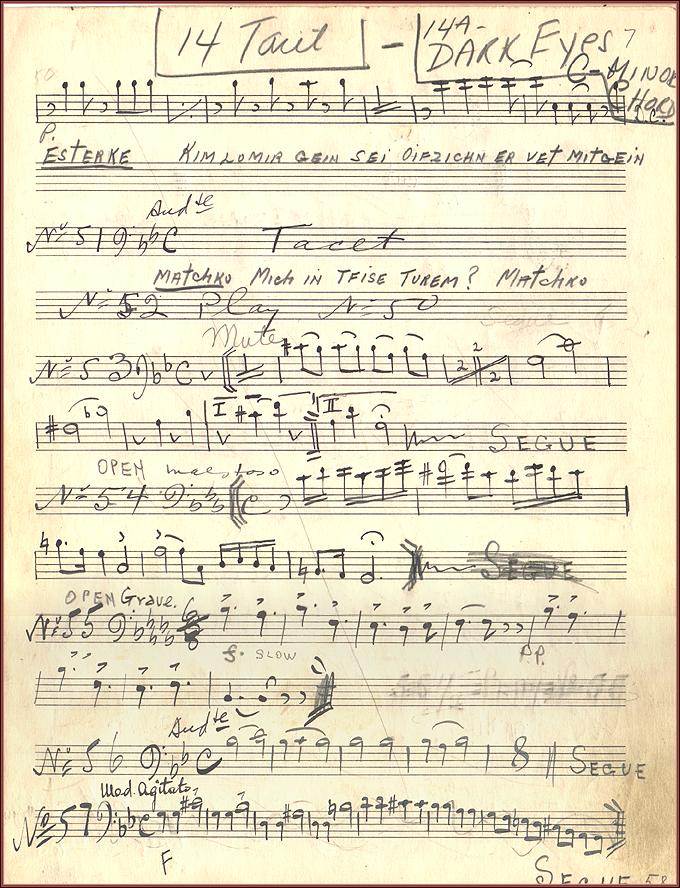 14 Tacit - 14A- DARK Eyes 7
C-MINOR
CHORD
P.
ESTERKE KIMLOMIR GEIN SEI OIFZICHN ER VET MITGEIN
Andte
No 51 C Tacet
MATCHKO MICH IN TFISE TUREM? MATCHKO
No 52 Play No 50
Segue
Mute
No 53 C 2 2 2
I II SEGUE
OPEN maestoso
No 54 C
SEGUE
OPEN Grave.
No 55 6 8
f. SLOW P.P.
Andte
No 56 C 8 SEGUE
Mod. Agitato
No 57 C
F
SEGUE 58